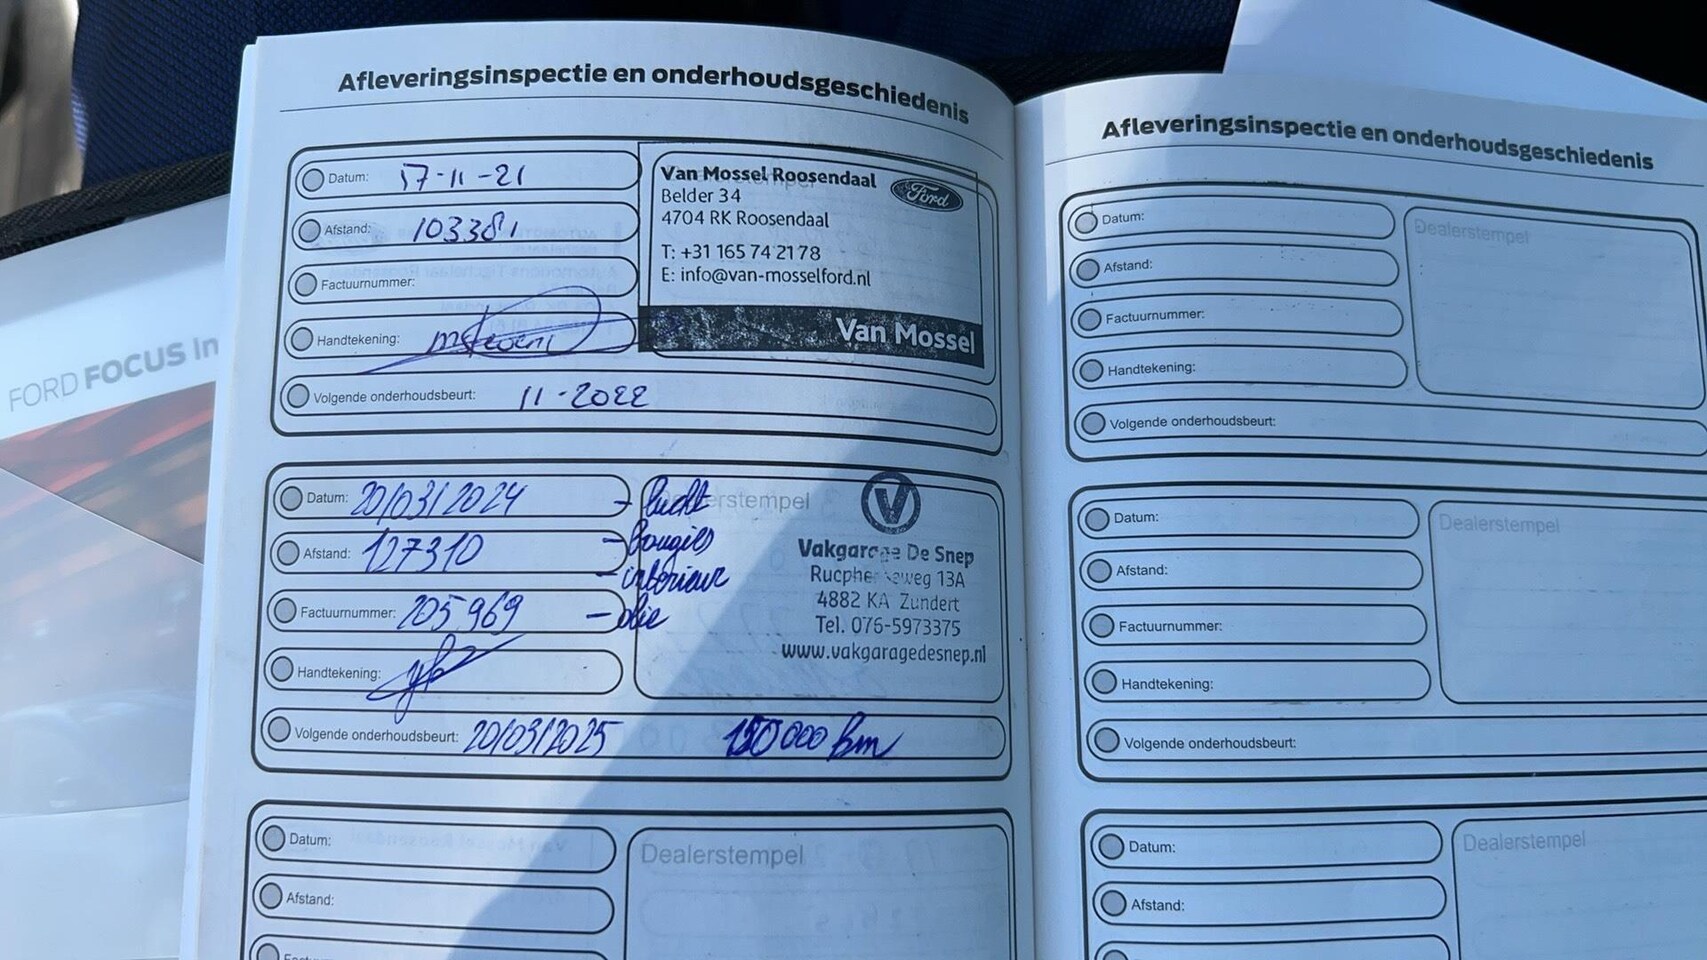 FORD FOCUS In
Afleveringsinspectie en onderhoudsgeschiedenis
Datum: 17-11-21
Afstand: 103381
Factuurnummer:
Handtekening:
Volgende onderhoudsbeurt: 11-2022
Van Mossel Roosendaal
Ford
Belder 34
4704 RK Roosendaal
T: +31 165 74 21 78
E: info@van-mosselford.nl
Van Mossel
Datum: 20/03/2024
Afstand: 127310
Factuurnummer: 205969
Handtekening:
Volgende onderhoudsbeurt: 20/03/2025 150000 km
Dealerstempel
- lucht
- bougies
- interieur
- olie
V
Vakgarage De Snep
weg 13A
4882 KA Zundert
Tel. 076-5973375
www.vakgaragedesnep.nl
Datum:
Afstand:
Dealerstempel
Afleveringsinspectie en onderhoudsgeschiedenis
Datum:
Afstand:
Factuurnummer:
Handtekening:
Volgende onderhoudsbeurt:
Dealerstempel
Datum:
Afstand:
Factuurnummer:
Handtekening:
Volgende onderhoudsbeurt:
Dealerstempel
Datum:
Afstand:
Dealerstempel